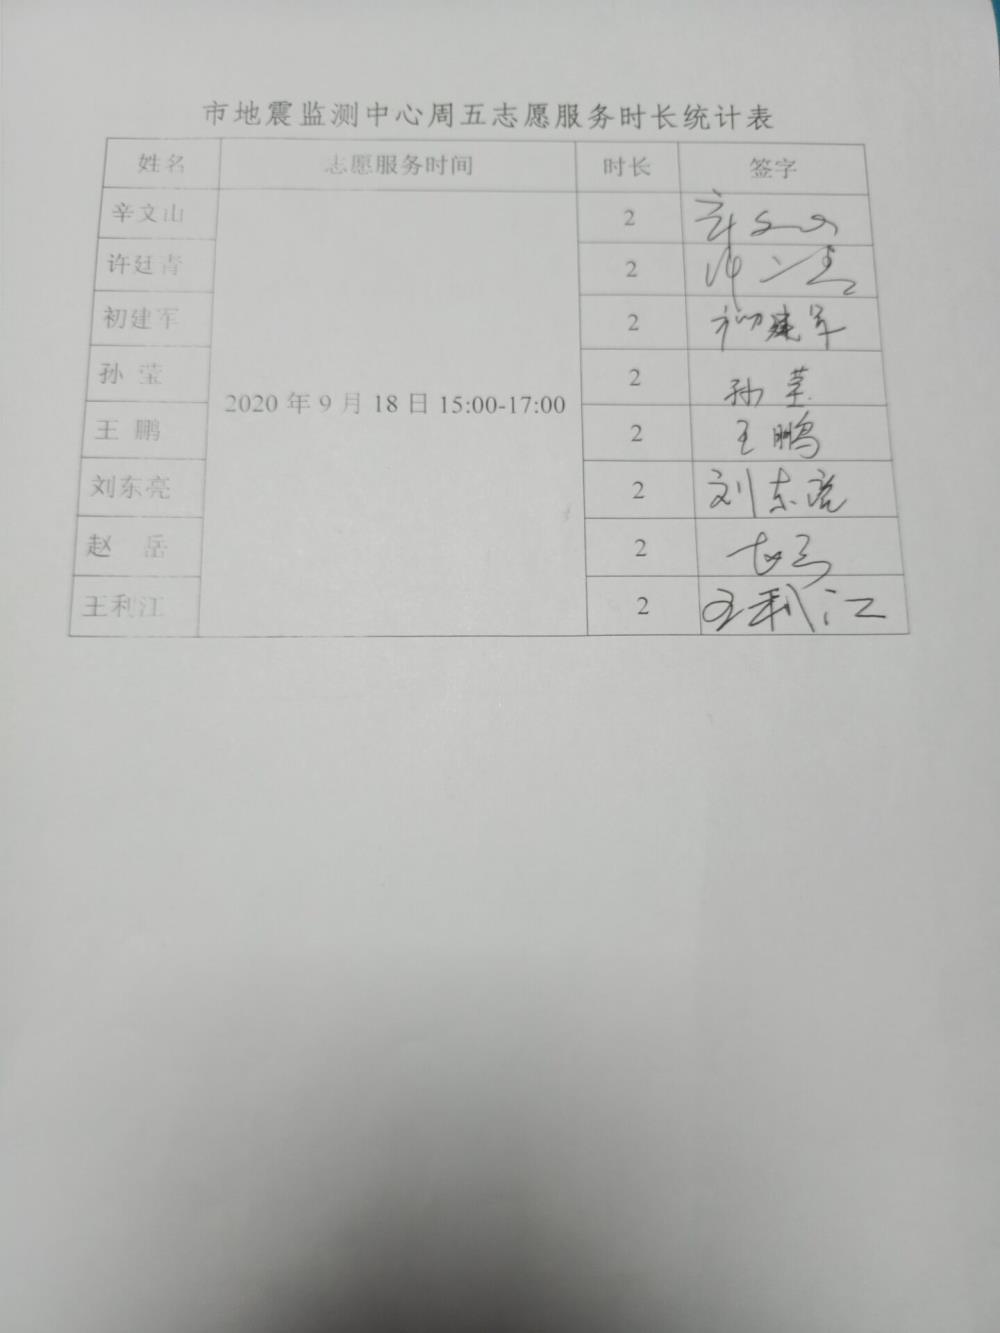 市地震监测中心周五志愿服务时长统计表
姓名 志愿服务时间 时长 签字
辛文山 2 辛文山
许廷青 2 许廷青
初建军 2 初建军
孙 莹 2 孙莹
2020年9月18日15:00-17:00
王 鹏 2 王鹏
刘东亮 2 刘东亮
赵 岳 2 赵岳
王利江 2 王利江